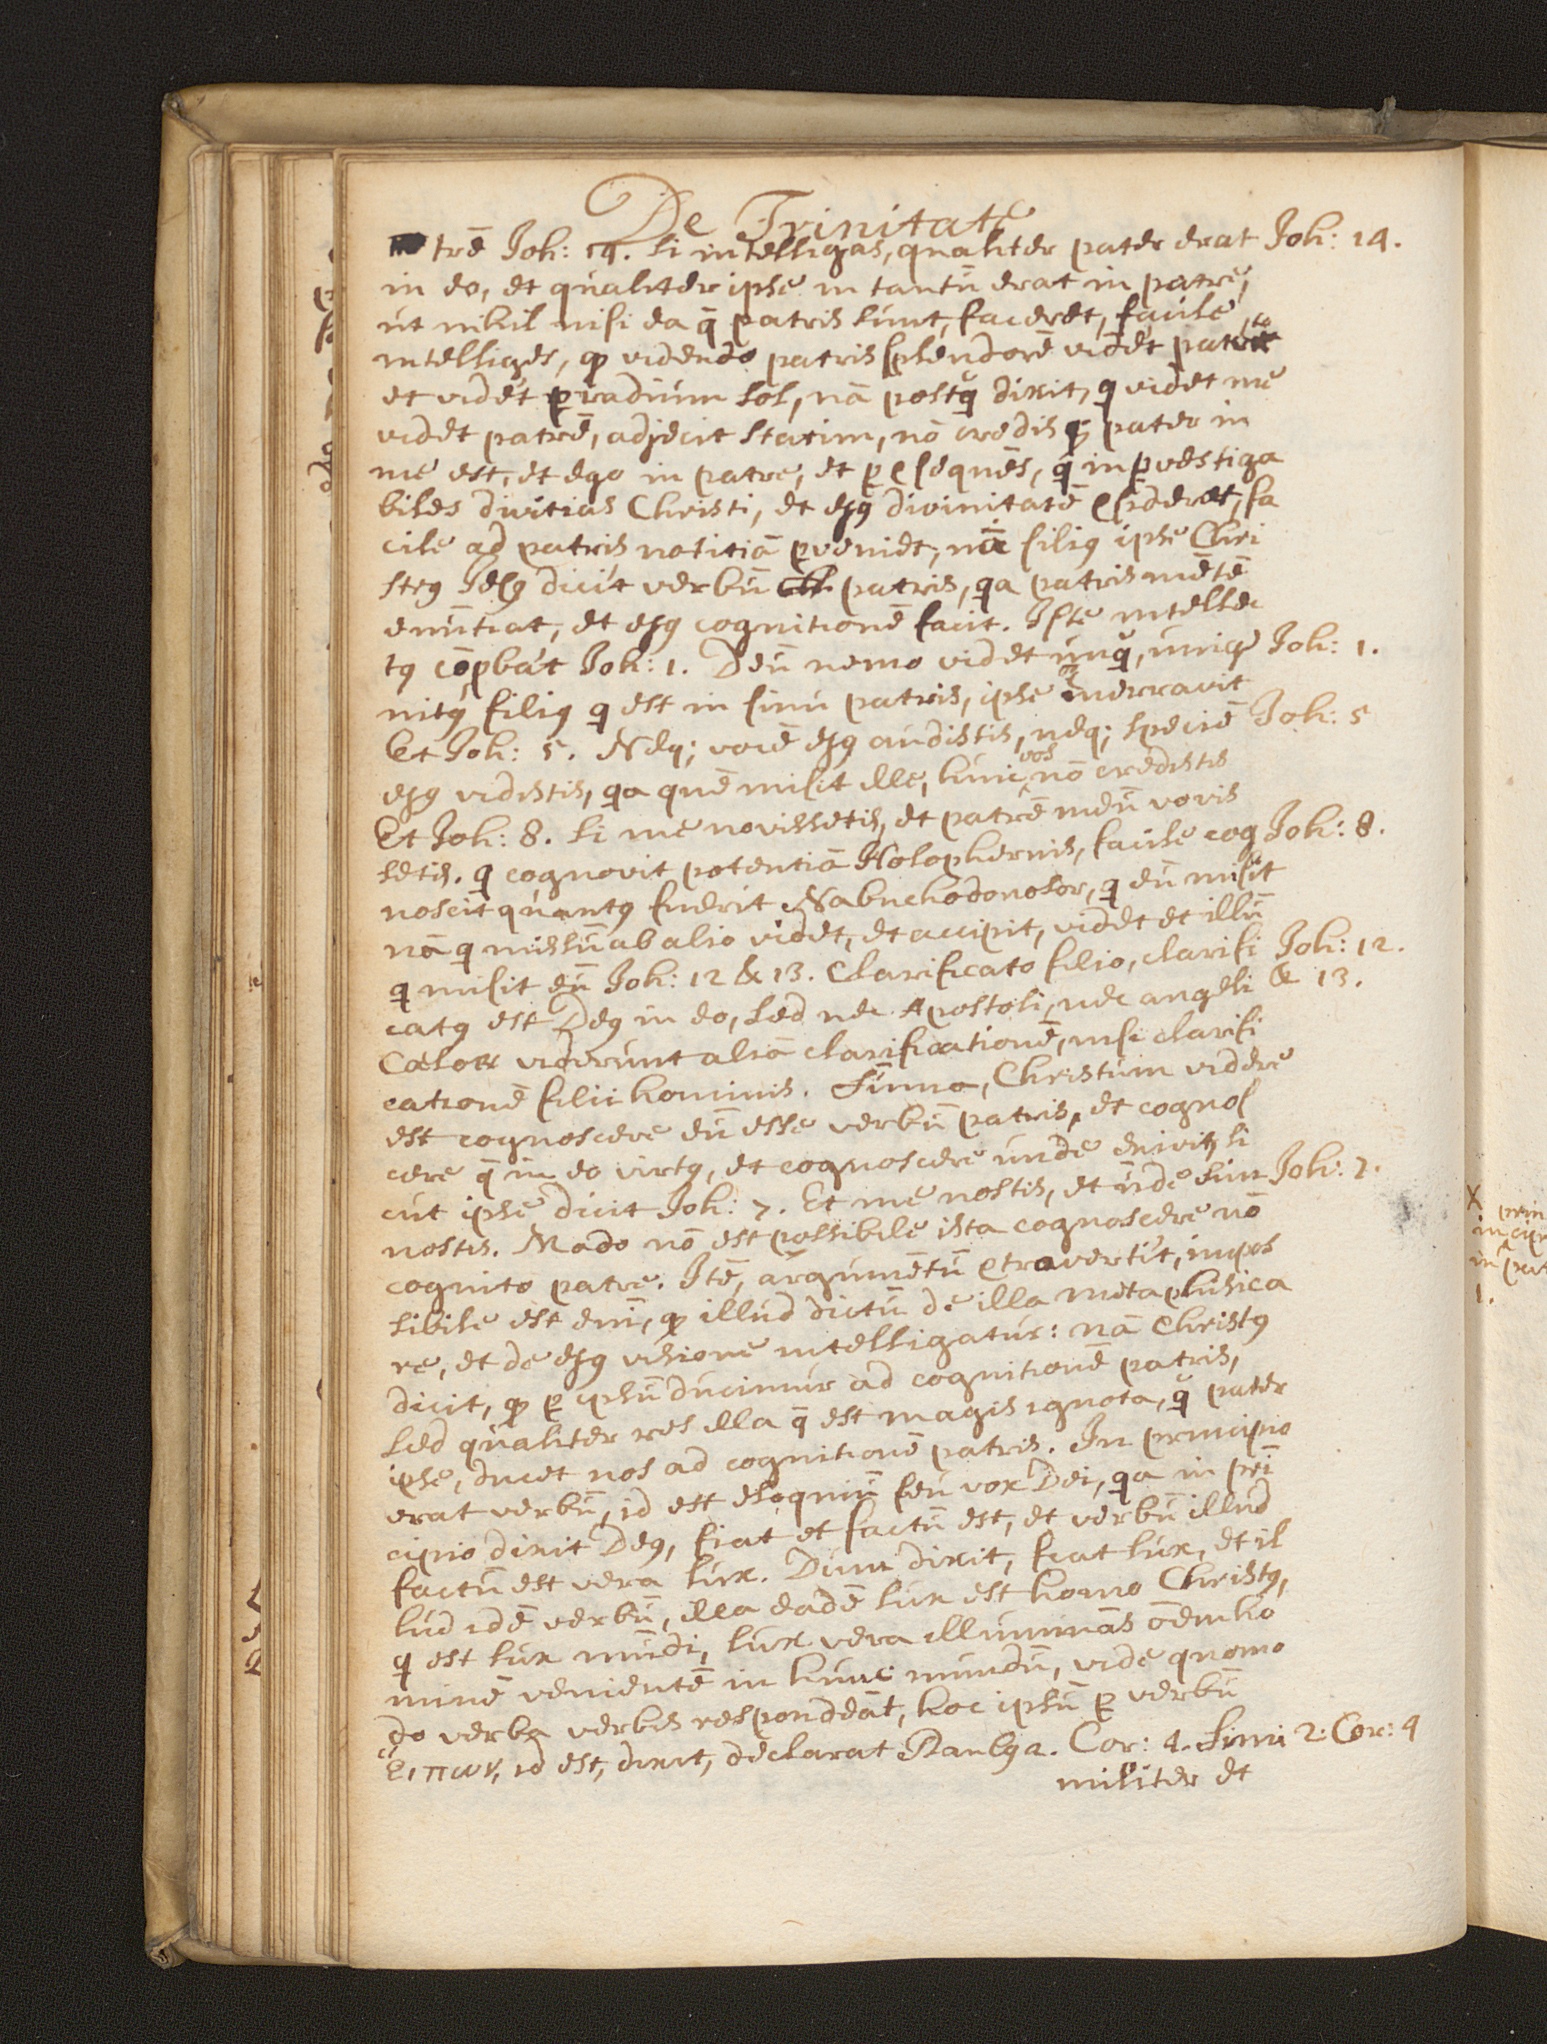 De Trinitate
trē Joh: 14. si intelligas, qualiter pater erat Joh: 14.
in eo, et qualiter ipse in tantū erat in patre,
ut nihil nisi ea q̄ patris sunt, faceret, facile
intelliges, qp videndo patris splendorē videt
et videt p̱ radium sol, nā postq̄ dixit, q videt me
videt patrē, adjecit statim, nō credis qp pater in
me est, et ego in patre, et p̱
biles divitias Christi, et ejꝰ divinitatē fa
cile ad patris notitiā p̱veniet, nā filiꝰ ipse Chri
stꝰ Jesꝰ dicit verbū patris, qa patris mētē
enūtiat, et ejꝰ cognitionē facit. Iste intellec
tꝰ cōpbat Joh: 1. Deū nemo videt unq̄, unige Joh: 1.
nitꝰ filiꝰ q est in sinu patris, ipse enerravit
Et Joh: 5. Neq; vocē ejꝰ audistis, neq; speciē Joh: 5
ejꝰ vidistis, qa quē misit ille, huic vos nō credistis
Et Joh: 8. si me novissetis, et patrē meū novis
setis. q cognovit potentiā Holophernis, facile cog Joh: 8.
noscit quantꝰ fuerit Nabuchodonosor, q eū misit
nā q missū ab alio videt, et accipit, videt et illū
q misit eū Joh: 12 & 13. Clarificato filio, clarifi Joh: 12.
catꝰ est Deꝰ in eo, sed nec Apostoli, nec angeli & 13.
Cœlor viderunt aliā clarificationē, nisi clarifi
cationē filii hominis. Sūma, Christum videre
est cognoscere eū esse verbū patris, et cognos
cere q̄ in eo virtꝰ, et cognoscere unde exivit, si
cut ipse dicit Joh: 7. Et me nostis, et ūde sim Joh: 7.
nostis. Modo nō est possibile ista cognoscere nō
cognito patre. Itē, argumētū cōtravertit, impos
sibile est enī, qp illud dictū de illa metaphisica
re, et de ejꝰ visione intelligatur: nā Christꝰ
dicit, qp p̱ ipsū ducimur ad cognitionē patris,
sed qualiter res illa q̄ est magis ignota, q̄ pater
ipse, ducet nos ad cognitionē patris. In principio
erat verbū, id est eloquiū seu vox Dei, qa in pri
cipio dixit Deꝰ, fiat et factū est, et verbū illud
factū est vera lux. Dum dixit, fiat lux, et il
lud idē verbū, illa eadē lux est homo Christꝰ,
q est lux mūdi, lux vera illuminās ōem ho
minē venientē in hunc mundū, vide quomo
do verba verbis respondeāt, hoc ipsū p̱ verbū
Ειπων, id est, dixit, declarat Paulꝰ 2. Cor: 4. Simi 2. Cor: 4
militer et